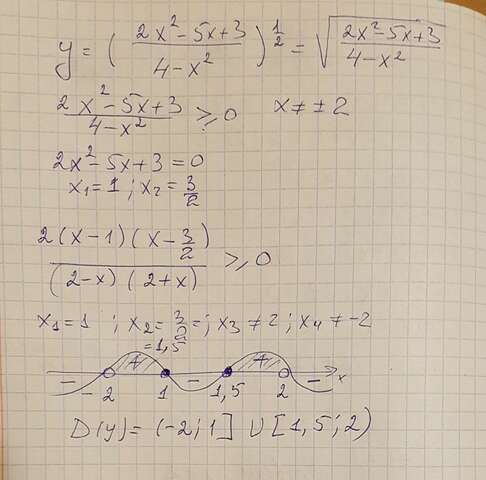 y = ( (2x² - 5x + 3)/(4 - x²) )^(1/2) = √((2x² - 5x + 3)/(4 - x²))
(2x² - 5x + 3)/(4 - x²) ≥ 0 x ≠ ± 2
2x² - 5x + 3 = 0
x₁ = 1 ; x₂ = 3/2
2(x - 1)(x - 3/2)/((2 - x)(2 + x)) ≥ 0
x₁ = 1 ; x₂ = 3/2 = ; x₃ ≠ 2 ; x₄ ≠ -2
= 1,5
- + - + - x
-2 1 1,5 2
D(y) = (-2; 1] ∪ [1,5; 2)